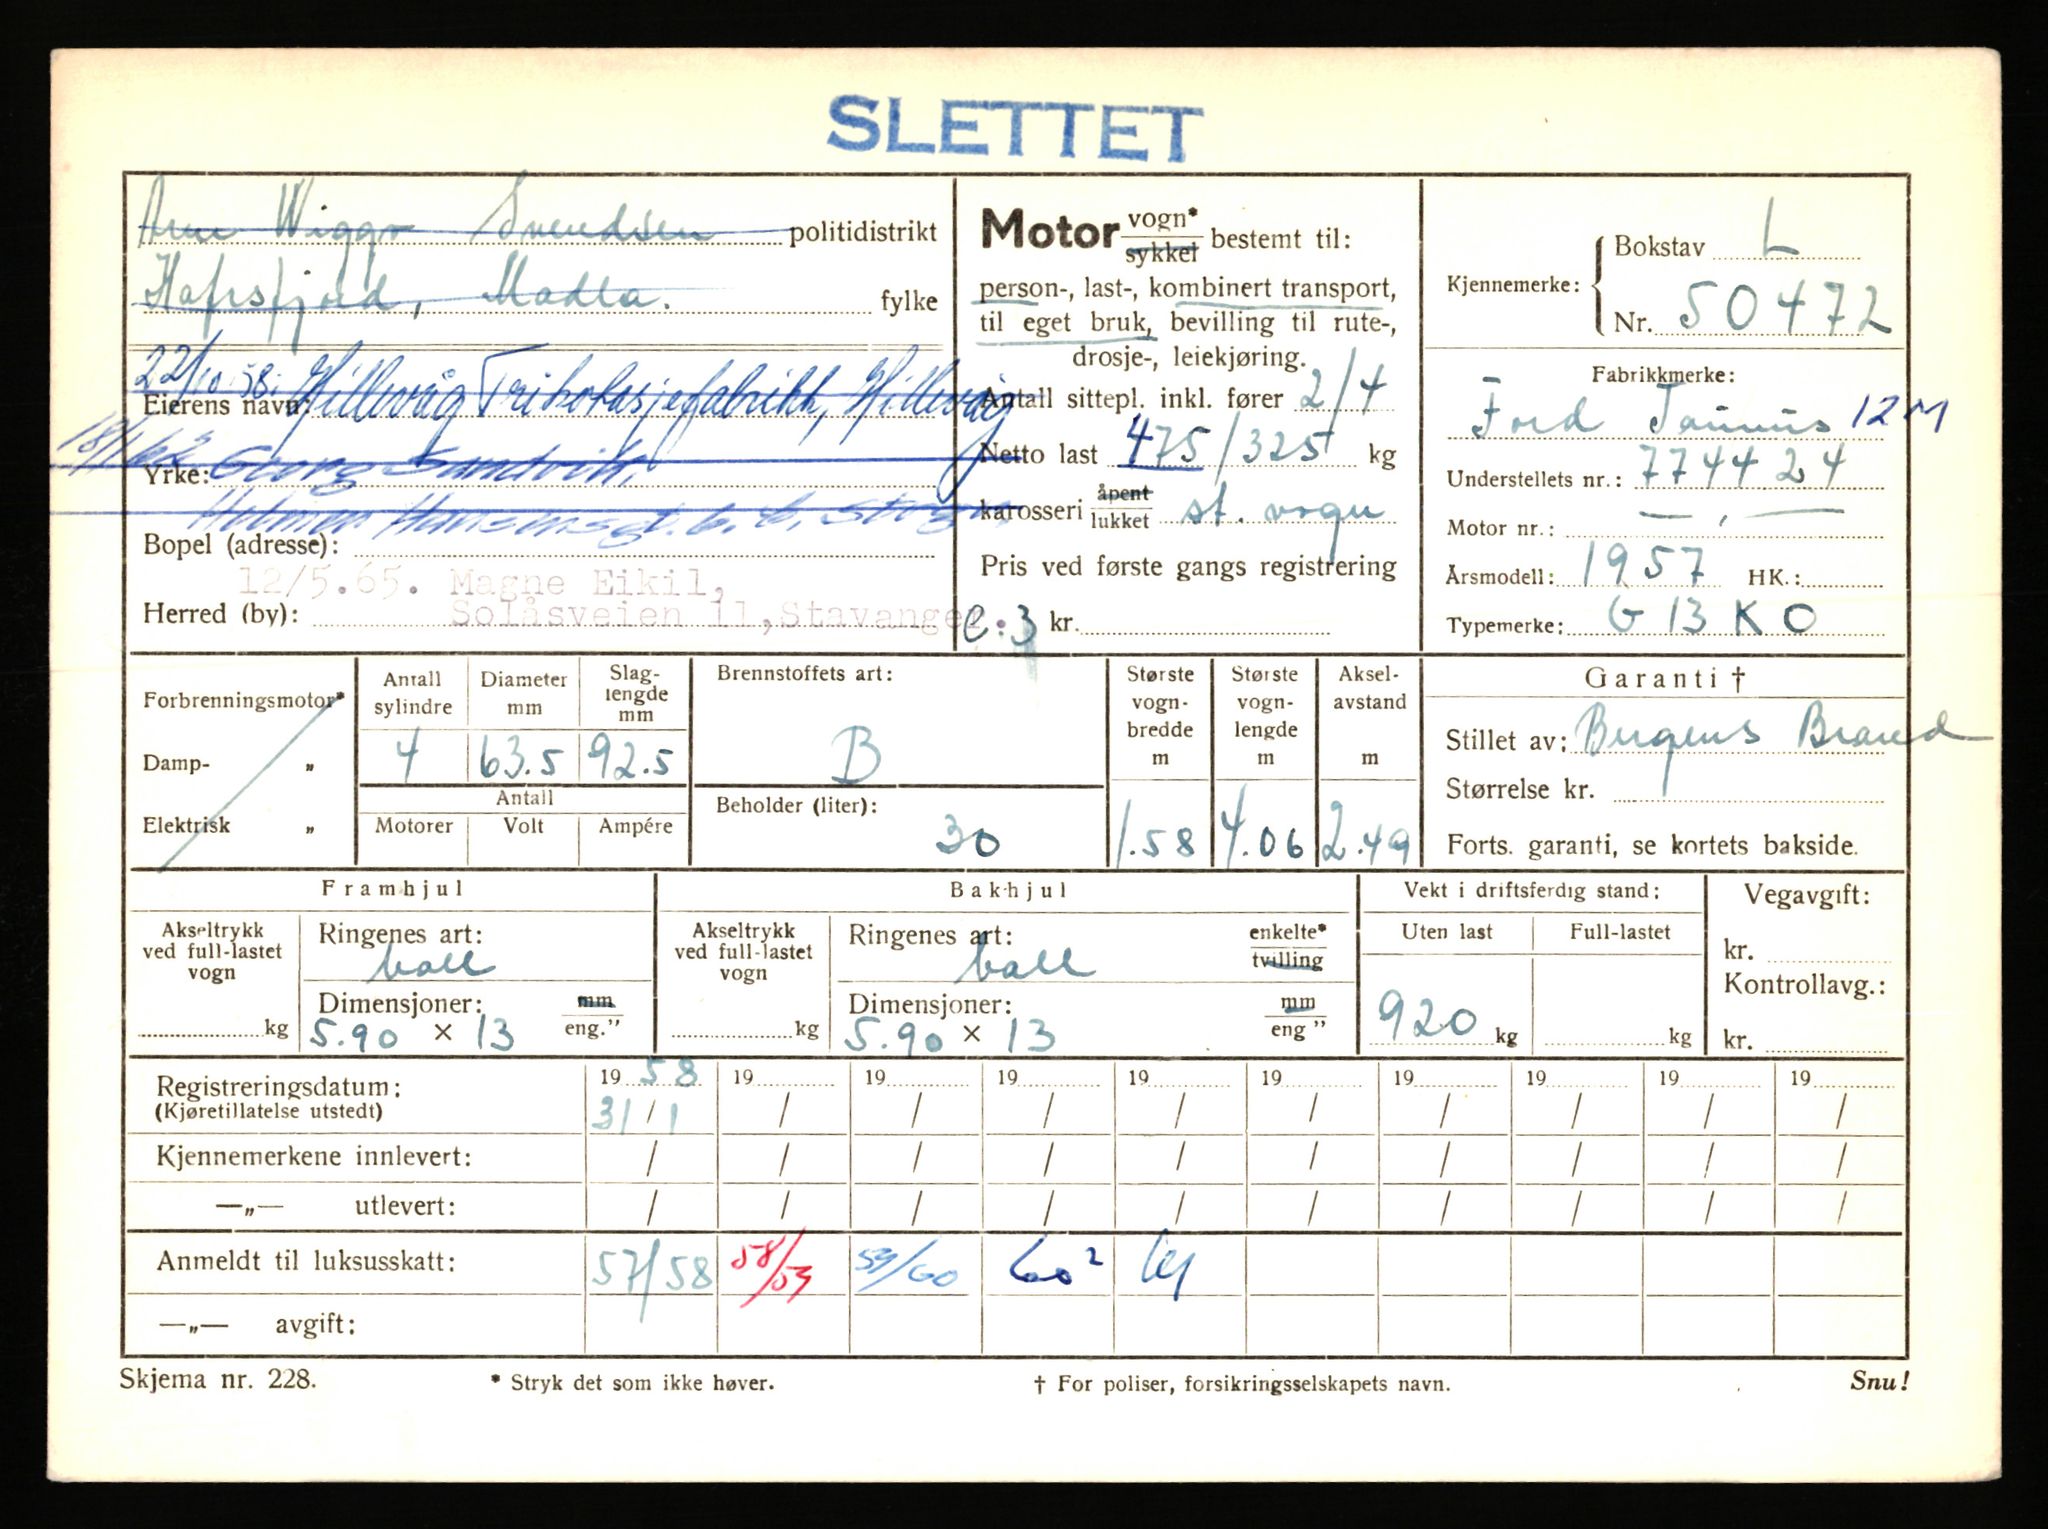 SLETTET
Arne Wiggo Svendsen politidistrikt
Hafrsfjord, Madla. fylke
22/10 58. Hillevåg Trikotasjefabrikk, Hillevåg
Eierens navn:
18/1/62 Georg Sandvik,
Yrke:
Helmer Hansensgt. 6. c, Stvgr.
Bopel (adresse):
12/5.65. Magne Eikil,
Herred (by): Solåsveien 11, Stavanger.
Motor vogn* sykkel bestemt til:
person-, last-, kombinert transport,
til eget bruk, bevilling til rute-,
drosje-, leiekjøring.
Antall sittepl. inkl. fører 2/4
Netto last 475/325 kg
karosseri åpent lukket st. vogn
Pris ved første gangs registrering
C:3 kr.
Kjennemerke: Bokstav L
Nr. 50472
Fabrikkmerke:
Ford Taunus 12M
Understellets nr.: 774424
Motor nr.: — , —
Årsmodell: 1957 HK.:
Typemerke: G 13 K O
Forbrenningsmotor*
Damp- „
Elektrisk „
Antall sylindre
Diameter mm
Slag-lengde mm
4 63.5 92.5
Antall
Motorer Volt Ampére
Brennstoffets art:
B
Beholder (liter):
30
Største vogn-bredde m
1.58
Største vogn-lengde m
4.06
Aksel-avstand m
2.49
Garanti †
Stillet av: Bergens Brand
Størrelse kr.
Forts. garanti, se kortets bakside.
Framhjul
Akseltrykk ved full-lastet vogn
kg
Ringenes art:
ball
Dimensjoner: mm eng."
5.90 × 13
Bakhjul
Akseltrykk ved full-lastet vogn
kg
Ringenes art: enkelte* tvilling
ball
Dimensjoner: mm eng "
5.90 × 13
Vekt i driftsferdig stand:
Uten last Full-lastet
920 kg kg
Vegavgift:
kr.
Kontrollavg.:
kr.
Registreringsdatum: 19 58 19 19 19 19 19 19 19 19 19
(Kjøretillatelse utstedt) 31/1 / / / / / / / / /
Kjennemerkene innlevert: / / / / / / / / / /
—„— utlevert: / / / / / / / / / /
Anmeldt til luksusskatt: 57/58 58/59 59/60 60² 61
—„— avgift:
Skjema nr. 228. * Stryk det som ikke høver. † For poliser, forsikringsselskapets navn. Snu!